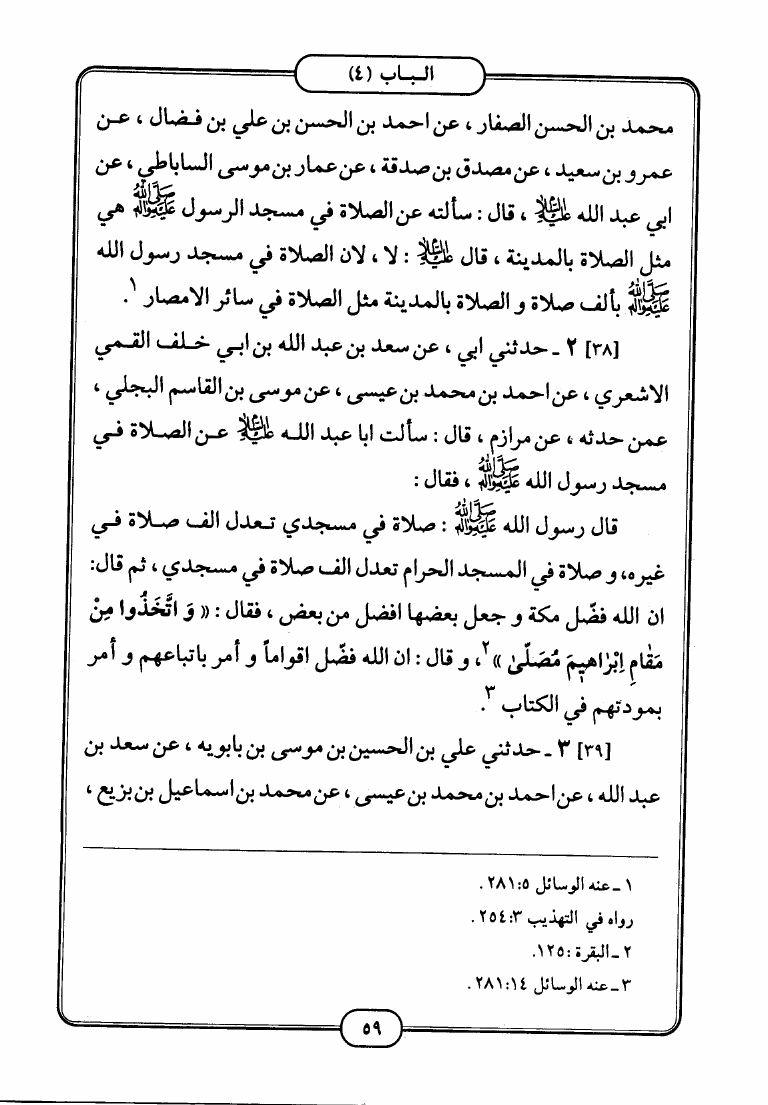 الـبـاب (٤)
محمد بن الحسن الصفار ، عن احمد بن الحسن بن علي بن فـضال ، عـن
عمرو بن سعيد ، عن مصدق بن صدقة ، عن عمار بن موسى الساباطي ، عن
ابي عبد الله عليه السلام ، قال : سألته عن الصلاة في مسجد الرسول صلى الله عليه وآله هي
مثل الصلاة بالمدينة ، قال عليه السلام : لا ، لان الصلاة في مسجد رسول الله
صلى الله عليه وآله بألف صلاة و الصلاة بالمدينة مثل الصلاة في سائر الامصار ١.
[٣٨] ٢ ـ حدثني ابي ، عن سعد بن عبد الله بن ابـي خـلـف القـمي
الاشعري ، عن احمد بن محمد بن عيسى ، عن موسى بن القاسم البجلي ،
عمن حدثه ، عن مرازم ، قال : سألت ابا عبد اللـه عليه السلام عـن الصـلاة فـي
مسجد رسول الله صلى الله عليه وآله ، فقال :
قال رسول الله صلى الله عليه وآله : صلاة في مسجدي تـعدل الف صـلاة فـي
غيره، و صلاة في المسجد الحرام تعدل الف صلاة في مسجدي ، ثم قال:
ان الله فضّل مكة و جعل بعضها افضل من بعض ، فقال : « وَ اتَّخَذُوا مِنْ
مَقٰامِ إِبْرٰاهيمَ مُصَلّىٰ »٢، و قال : ان الله فضّل اقواماً و أمر باتباعهم و أمر
بمودتهم في الكتاب ٣.
[٣٩] ٣ ـ حدثني علي بن الحسين بن موسى بن بابويه ، عن سعد بن
عبد الله ، عن احمد بن محمد بن عيسى ، عن محمد بن اسماعيل بن بزيع ،
١ ـ عنه الوسائل ٥:‏٢٨١ .
رواه في التهذيب ٣:‏٢٥٤ .
٢ ـ البقرة : ١٢٥.
٣ ـ عنه الوسائل ١٤:‏٢٨١ .
٥٩